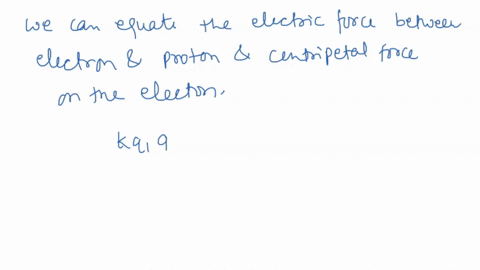 we can equate the electric force between
electron & proton & centripetal force
on the electron.
kq, q